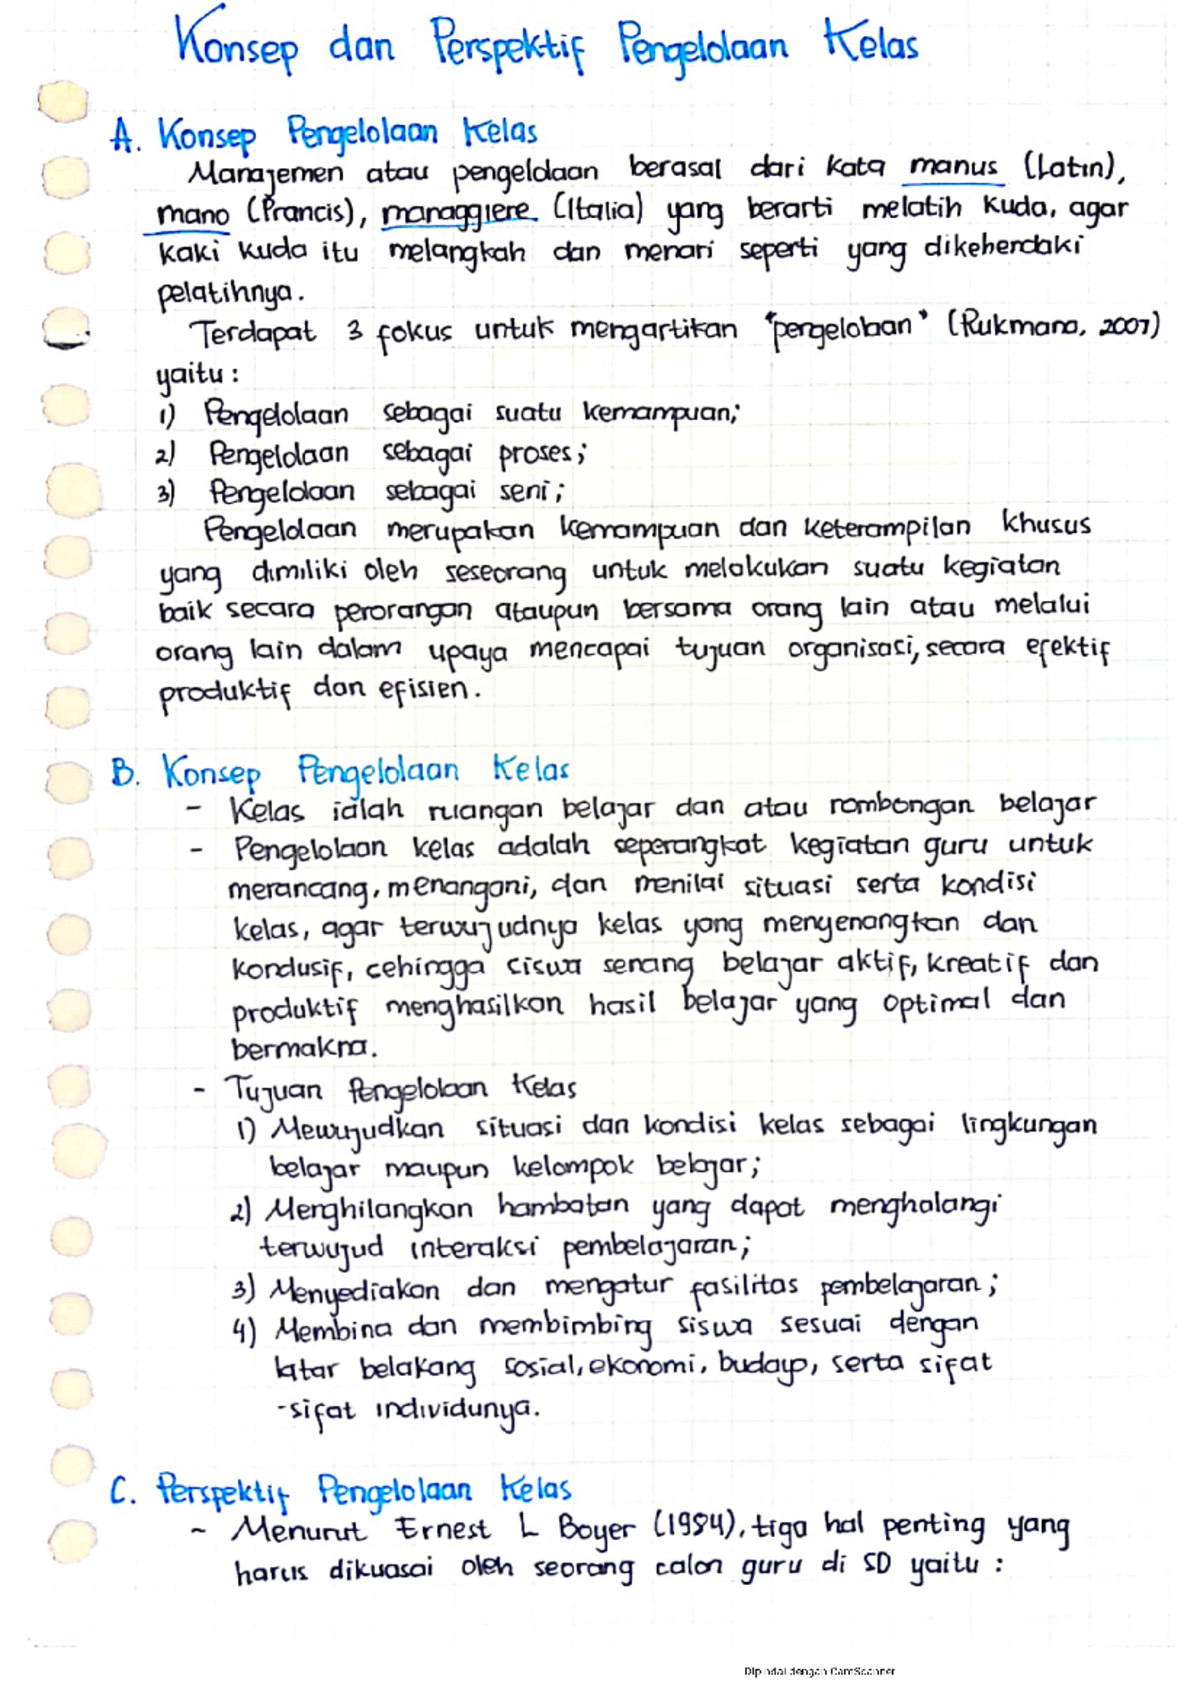 Konsep dan Perspektif Pengelolaan Kelas
A. Konsep Pengelolaan Kelas
Manajemen atau pengelolaan berasal dari kata manus (Latin),
mano (Prancis), managgiere (Italia) yang berarti melatih kuda, agar
kaki kuda itu melangkah dan menari seperti yang dikehendaki
pelatihnya.
Terdapat 3 fokus untuk mengartikan "pengelolaan" (Rukmana, 2007)
yaitu :
1) Pengelolaan sebagai suatu kemampuan;
2) Pengelolaan sebagai proses;
3) Pengelolaan sebagai seni;
Pengelolaan merupakan kemampuan dan keterampilan khusus
yang dimiliki oleh seseorang untuk melakukan suatu kegiatan
baik secara perorangan ataupun bersama orang lain atau melalui
orang lain dalam upaya mencapai tujuan organisasi, secara efektif
produktif dan efisien.
B. Konsep Pengelolaan Kelas
- Kelas ialah ruangan belajar dan atau rombongan belajar
- Pengelolaan kelas adalah seperangkat kegiatan guru untuk
merancang, menangani, dan menilai situasi serta kondisi
kelas, agar terwujudnya kelas yang menyenangkan dan
kondusif, sehingga siswa senang belajar aktif, kreatif dan
produktif menghasilkan hasil belajar yang optimal dan
bermakna.
- Tujuan Pengelolaan Kelas
1) Mewujudkan situasi dan kondisi kelas sebagai lingkungan
belajar maupun kelompok belajar;
2) Menghilangkan hambatan yang dapat menghalangi
terwujud interaksi pembelajaran;
3) Menyediakan dan mengatur fasilitas pembelajaran;
4) Membina dan membimbing siswa sesuai dengan
latar belakang sosial, ekonomi, budaya, serta sifat
-sifat individunya.
C. Perspektif Pengelolaan Kelas
- Menurut Ernest L Boyer (1984), tiga hal penting yang
harus dikuasai oleh seorang calon guru di SD yaitu :
Dipindai dengan CamScanner